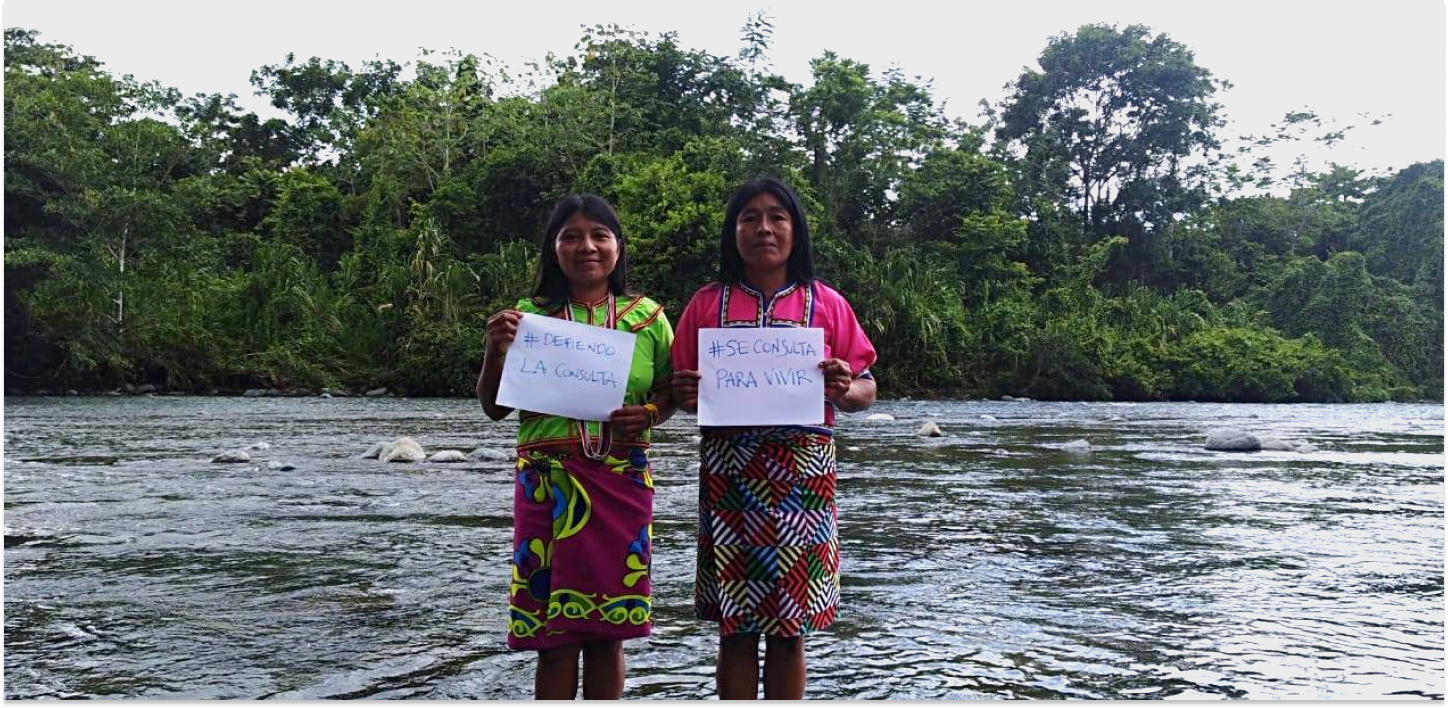 # DEFIENDO
LA CONSULTA
#SE CONSULTA
PARA VIVIR